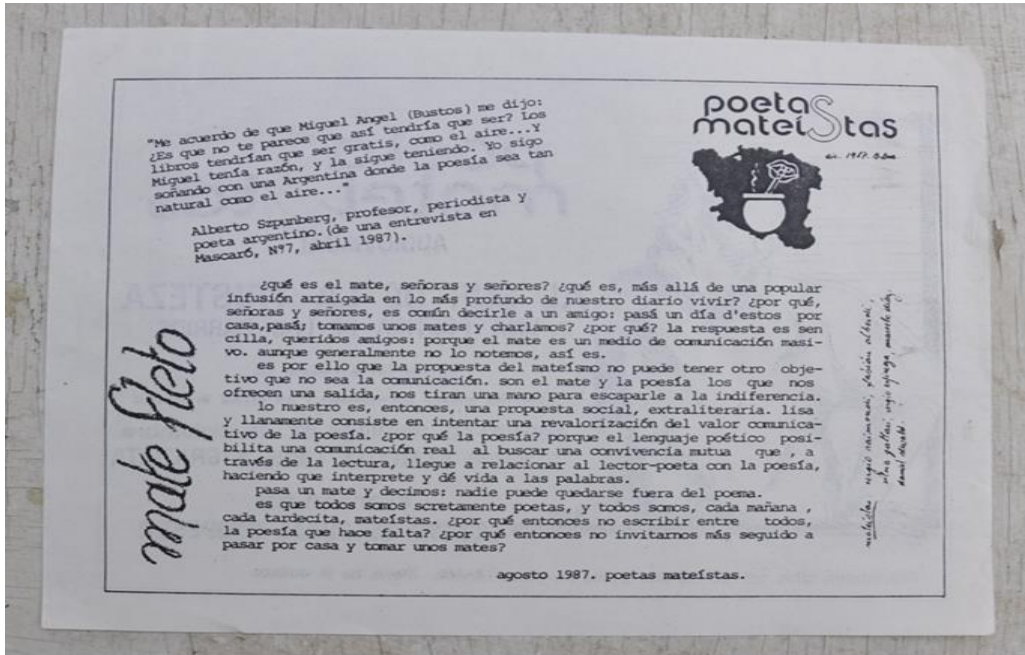 "Me acuerdo de que Miguel Angel (Bustos) me dijo:
¿Es que no te parece que así tendría que ser? Los
libros tendrían que ser gratis, como el aire...Y
Miguel tenía razón, y la sigue teniendo. Yo sigo
soñando con una Argentina donde la poesía sea tan
natural como el aire..."
Alberto Szpunberg, profesor, periodista y
poeta argentino.(de una entrevista en
Mascaró, Nº7, abril 1987).
poetas
mateístas
1987.
mate fleto
¿qué es el mate, señoras y señores? ¿qué es, más allá de una popular
infusión arraigada en lo más profundo de nuestro diario vivir? ¿por qué,
señoras y señores, es común decirle a un amigo: pasá un día d'estos por
casa,pasá; tomamos unos mates y charlamos? ¿por qué? la respuesta es sen
cilla, queridos amigos: porque el mate es un medio de comunicación masi-
vo. aunque generalmente no lo notemos, así es.
es por ello que la propuesta del mateísmo no puede tener otro obje-
tivo que no sea la comunicación. son el mate y la poesía los que nos
ofrecen una salida, nos tiran una mano para escaparle a la indiferencia.
lo nuestro es, entonces, una propuesta social, extraliteraria. lisa
y llanamente consiste en intentar una revalorización del valor comunica-
tivo de la poesía. ¿por qué la poesía? porque el lenguaje poético posi-
bilita una comunicación real al buscar una convivencia mutua que , a
través de la lectura, llegue a relacionar al lector-poeta con la poesía,
haciendo que interprete y dé vida a las palabras.
pasa un mate y decimos: nadie puede quedarse fuera del poema.
es que todos somos scretamente poetas, y todos somos, cada mañana ,
cada tardecita, mateístas. ¿por qué entonces no escribir entre todos,
la poesía que hace falta? ¿por qué entonces no invitarnos más seguido a
pasar por casa y tomar unos mates?
agosto 1987. poetas mateístas.
mateístas: sergio raimondi, fabián alberdi,
sergio espinoza, marcelo díaz,